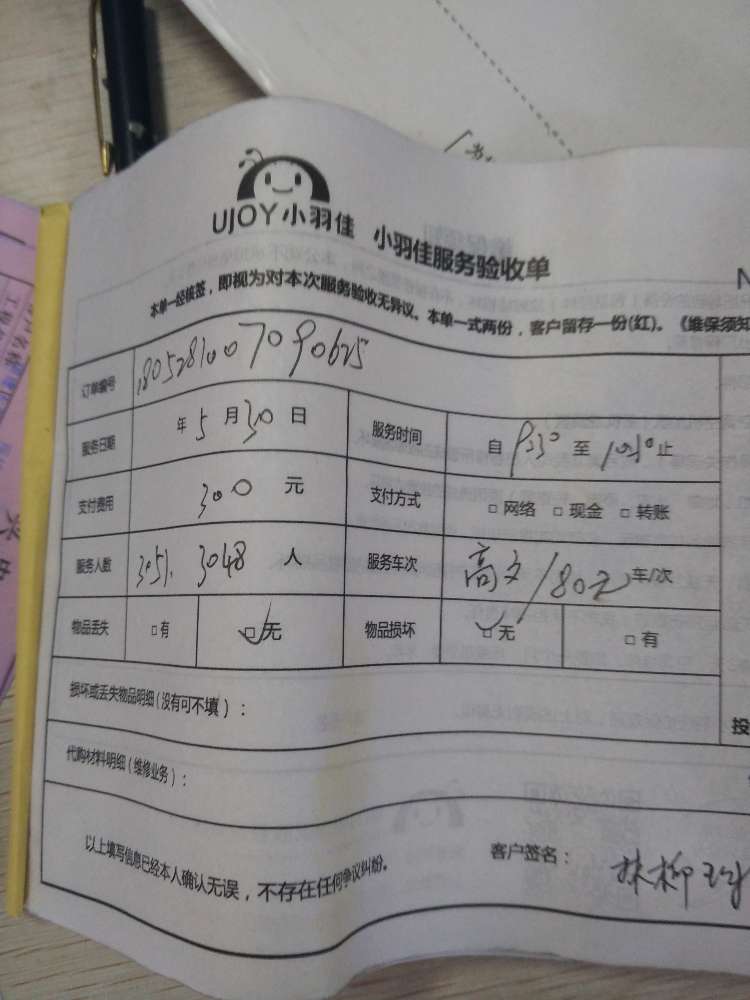 UJOY小羽佳 小羽佳服务验收单
本单一经核签，即视为对本次服务验收无异议。本单一式两份，客户留存一份(红)。《维保须知
订单编号 1805281007090625
服务日期 年 5 月 30 日 服务时间 自 至 止
支付费用 300 元 支付方式 □网络 □现金 □转账
服务人数 3051. 3048 人 服务车次 /80元 车/次
物品丢失 □有 ☑无 物品损坏 ☑无 □有
损坏或丢失物品明细(没有可不填)：
代购材料明细(维修业务)：
以上填写信息已经本人确认无误，不存在任何争议纠纷。
客户签名： 林柳